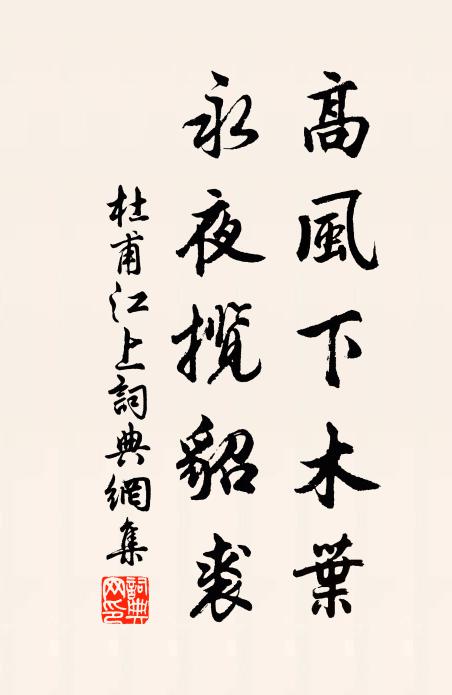 高風下木葉
永夜揽貂裘
杜甫江上詞典網集
詞典網印